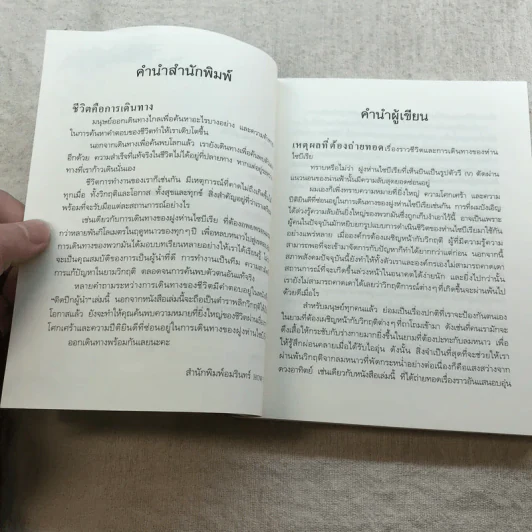 คำนำสำนักพิมพ์
ชีวิตคือการเดินทาง
มนุษย์ออกเดินทางไกลเพื่อค้นหาอะไรบางอย่าง และความท้าทาย
ในการค้นหาคำตอบของชีวิตทำให้เราเติบโตขึ้น
นอกจากเดินทางเพื่อค้นพบโลกแล้ว เรายังเดินทางเพื่อค้นพบ
อีกด้วย ความสำเร็จที่แท้จริงในชีวิตไม่ได้อยู่ที่ปลายทาง หากแต่อยู่
ทางที่เราก้าวเดินนั่นเอง
ชีวิตการทำงานของเราก็เช่นกัน มีเหตุการณ์ที่คาดไม่ถึงเกิดขึ้น
ทุกเมื่อ ทั้งวิกฤติและโอกาส ทั้งสุขและทุกข์ สิ่งสำคัญอยู่ที่ว่าเรา
พร้อมที่จะรับมือแต่ละสถานการณ์อย่างไร
เช่นเดียวกับการเดินทางของฝูงห่านไซบีเรีย ที่ต้องอพยพ
กว่าหลายพันกิโลเมตรในฤดูหนาวของทุกๆ ปี เพื่อหลบหนาวไปสู่
การเดินทางของพวกมันได้มอบบทเรียนหลายอย่างให้เราได้เรียนรู้
จะเป็นคุณสมบัติของการเป็นผู้นำที่ดี การทำงานเป็นทีม ความ
การแก้ปัญหาในยามวิกฤติ ตลอดจนการค้นพบตัวตนอันแท้จริง
หลายคำถามระหว่างการเดินทางของชีวิตมีคำตอบอยู่ในหนังสือ
“ติดปีกผู้นำ” เล่มนี้ นอกจากหนังสือเล่มนี้จะถือเป็นตำราพลิกวิกฤติให้
โอกาสแล้ว ยังจะทำให้คุณค้นพบความหมายที่ยิ่งใหญ่ของชีวิต
โศกเศร้าและความปีติยินดีที่ซ่อนอยู่ในการเดินทางของฝูงห่าน
ออกเดินทางพร้อมกันเลยนะคะ
สำนักพิมพ์อมรินทร์
คำนำผู้เขียน
เหตุผลที่ต้องถ่ายทอดเรื่องราวชีวิตและการเดินทางของห่าน
ไซบีเรีย
ทราบหรือไม่ว่า ฝูงห่านไซบีเรียที่เห็นบินเป็นรูปตัววี ตัดผ่าน
แนวนอนของน่านฟ้านั้นมีความลับสุดยอดซ่อนอยู่
ผมเองก็เพิ่งทราบความหมายที่ยิ่งใหญ่ ความโศกเศร้า และความ
ปีติยินดีที่ซ่อนอยู่ในการเดินทางของฝูงห่านไซบีเรียเช่นกัน การที่ผมบังเอิญ
ได้ล่วงรู้ความลับอันยิ่งใหญ่ของพวกมันซึ่งถูกเก็บงำเอาไว้นี้ อาจเป็นเพราะ
ผู้คนในปัจจุบันมักหยิบยกรูปแบบการดำเนินชีวิตของห่านไซบีเรียมาใช้กัน
อย่างแพร่หลาย เมื่อองค์กรต้องเผชิญหน้ากับวิกฤติ ผู้ที่มีความรู้ความ
สามารถพอที่จะเข้ามาจัดการกับปัญหาก็ทำได้ยากกว่าแต่ก่อน นอกจากนี้
สภาพสังคมปัจจุบันนี้ยังทำให้ทั้งตัวเราและองค์กรเองไม่สามารถคาดเดา
สถานการณ์ที่จะเกิดขึ้นล่วงหน้าในอนาคตได้ง่ายนัก และยิ่งไปกว่านั้น
เรายังไม่สามารถคาดเดาได้เลยว่าวิกฤติการณ์ต่างๆ ที่เกิดขึ้นจะผ่านพ้นไป
ด้วยดีเมื่อไร
สำหรับมนุษย์ทุกคนแล้ว ย่อมเป็นเรื่องปกติที่เราจะป้องกันตนเอง
ในยามที่ต้องเผชิญหน้ากับวิกฤติต่างๆ ที่ถาโถมเข้ามา ดังเช่นที่คนเรามักจะ
ดึงเสื้อให้กระชับกับร่างกายมากยิ่งขึ้นในยามที่ต้องปะทะกับลมหนาว เพื่อ
ให้รู้สึกผ่อนคลายเมื่อได้รับไออุ่น ดังนั้น สิ่งจำเป็นที่สุดที่จะช่วยให้เรา
ผ่านพ้นวิกฤติจากลมหนาวที่พัดกระหน่ำอย่างต่อเนื่องก็คือแสงสว่างจาก
ดวงอาทิตย์ เช่นเดียวกับหนังสือเล่มนี้ ที่ได้ถ่ายทอดเรื่องราวอันแสนอบอุ่น